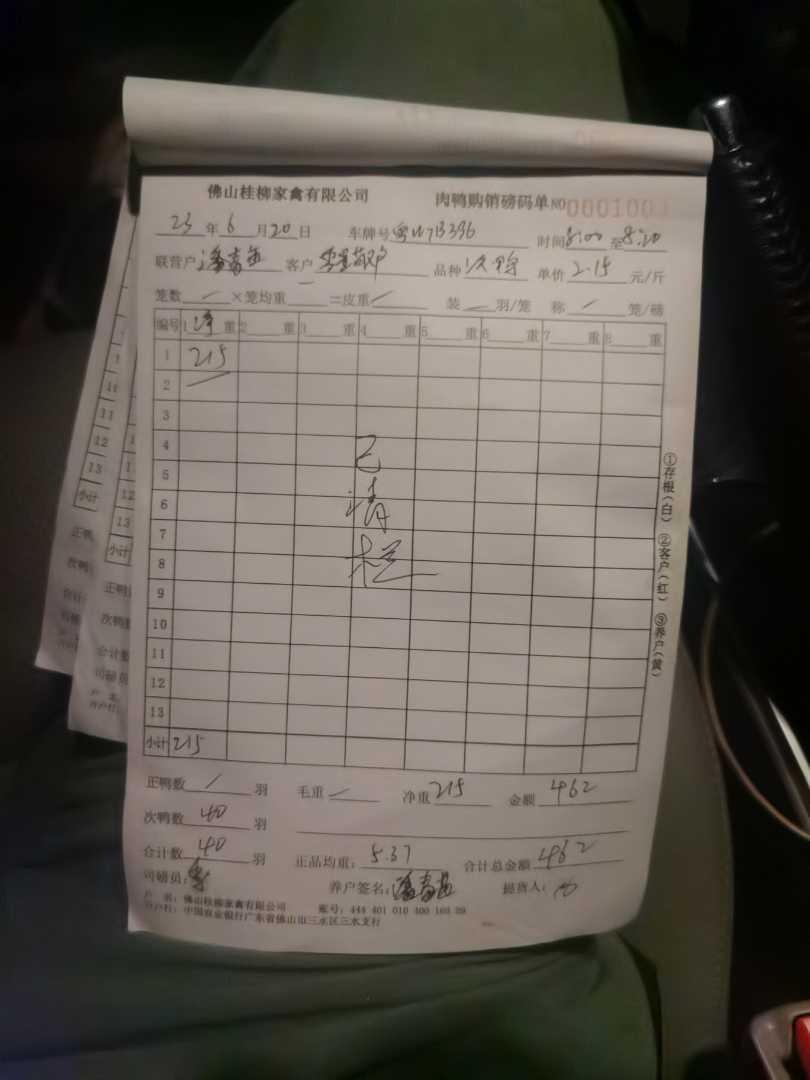 佛山桂柳家禽有限公司 肉鸭购销磅码单 NO 000100
23 年 6 月 20 日 车牌号 时间 8:00 至 8:20
联营户 客户 品种 次鸭 单价 2.15 元/斤
笼数 / ×笼均重 =皮重 / 装 羽/笼 称 / 笼/磅
编号 1 净 重 2 重 3 重 4 重 5 重 6 重 7 重 8 重
1 215
2
3
4
5
6
7
8
9
10
11
12
13
已清栏
小计 215
正鸭数 / 羽 毛重 净重 215 金额 462
次鸭数 40 羽
合计数 40 羽 正品均重: 5.37 合计总金额 462
司磅员: 养户签名: 提货人:
户 名: 佛山桂柳家禽有限公司 账号: 444 401 010 400
开户行: 中国农业银行广东省佛山市三水区三水支行
①存根(白) ②客户(红) ③养户(黄)
10
11
12
13
小计
正鸭
次鸭
11
12
13
小计
正鸭
次鸭数
合计数
司磅员